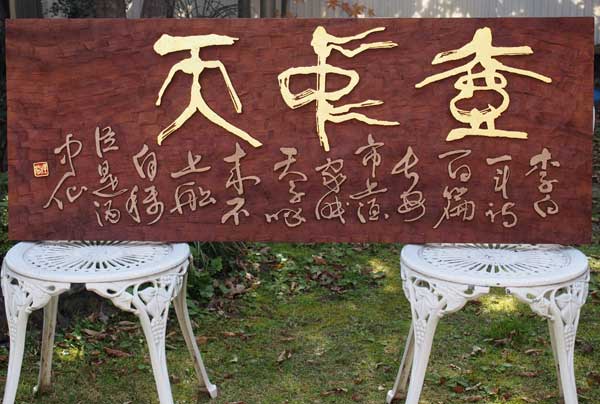 壺中天
李白
一斗詩
百篇
長安
市上酒
家眠
天子呼
来不
上船
自称
臣是酒
中仙